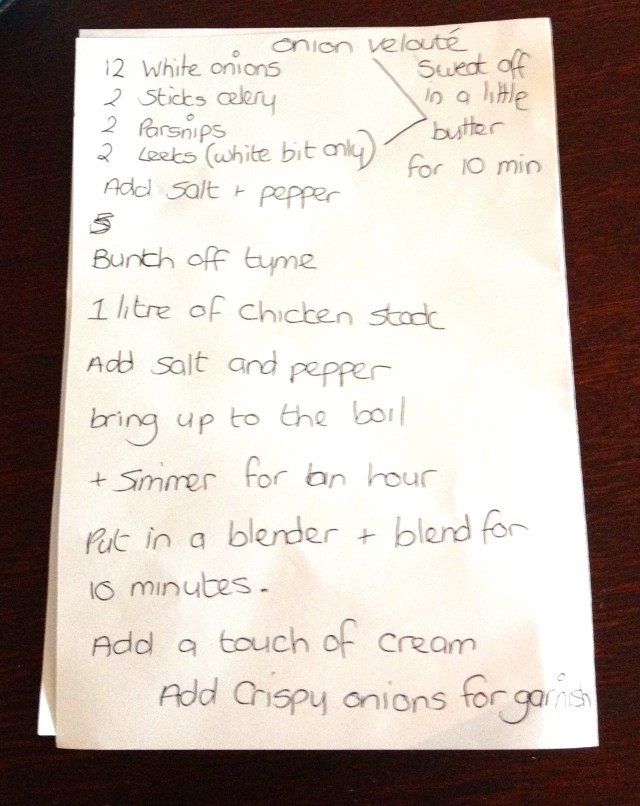 onion velouté
12 White onions
2 Sticks celery
2 Parsnips
2 Leeks (white bit only)
Sweat off
in a little
butter
for 10 min
Add Salt + pepper
Bunch off tyme
1 litre of chicken stock
Add salt and pepper
bring up to the boil
+ Simmer for an hour
Put in a blender + blend for
10 minutes.
Add a touch of cream
Add Crispy onions for garnish